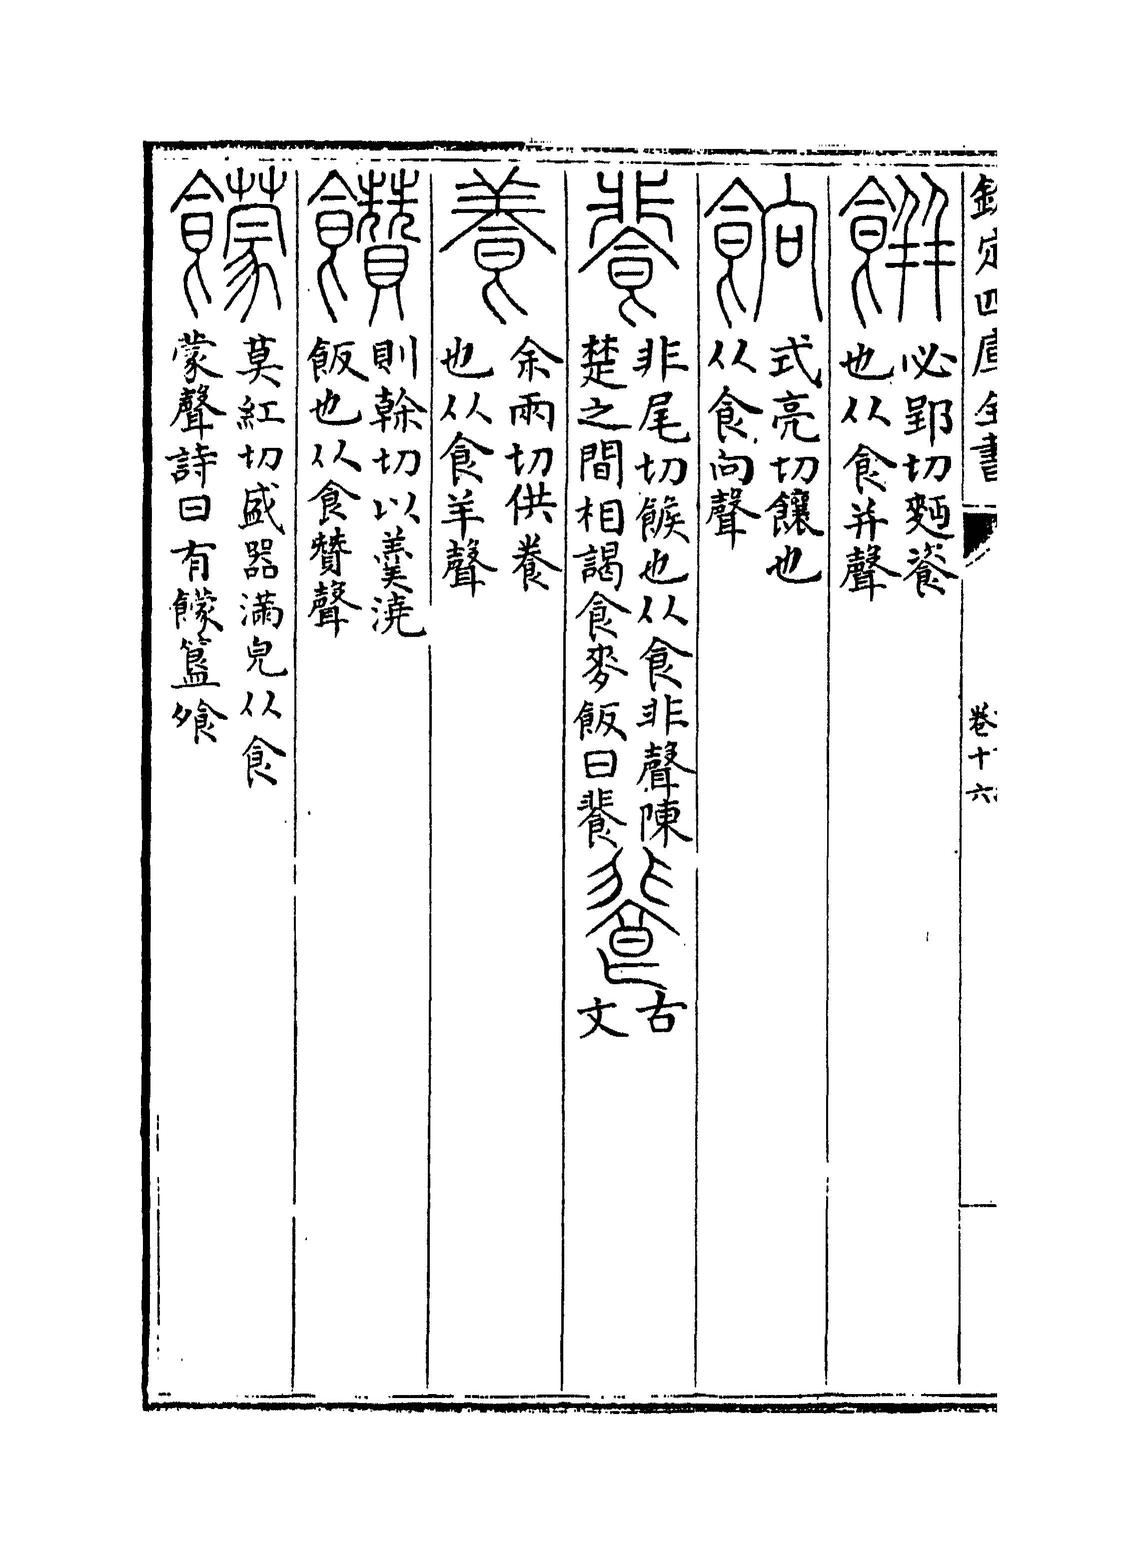 欽定四庫全書
卷十六
餅
必郢切麪餈
也从食并聲
餉
式亮切饟也
从食向聲
餥
非尾切餱也从食非聲陳
楚之間相謁食麥飯曰餥
古
文
養
余兩切供養
也从食羊聲
饡
則榦切以羹澆
飯也从食贊聲
饛
莫紅切盛器滿皃从食
蒙聲詩曰有饛簋飧